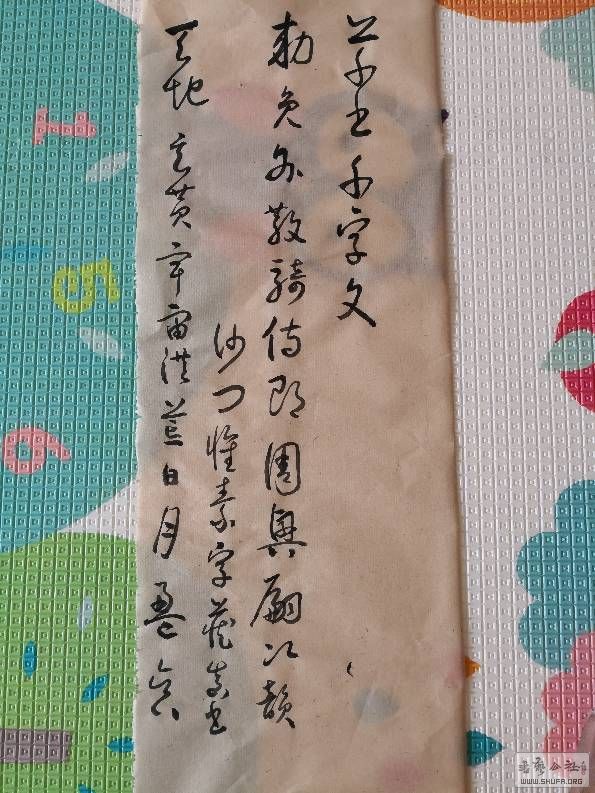 草書千字文
勅員外散騎侍郎周興嗣次韻
沙門懷素字藏真書
天地玄黃宇宙洪荒日月盈昃
1
5
6
書藝公社
WWW.SHUFA.ORG